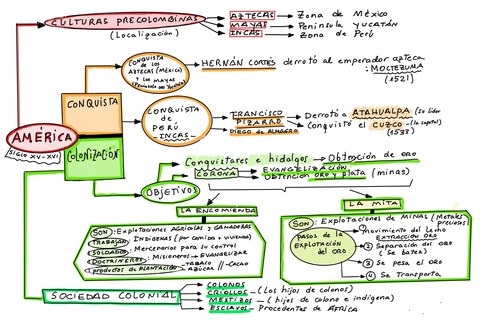 CULTURAS PRECOLOMBINAS
(Localización)
AZTECAS → Zona de México
MAYAS → Península yucatán
INCAS → Zona de Perú
AMÉRICA
SIGLO XV-XVI
CONQUISTA
CONQUISTA
DE LOS
AZTECAS (MÉXICO)
Y LOS MAYAS
(Península del Yucatán)
HERNÁN CORTÉS derrotó al emperador azteca:
MOCTEZUMA
(1521)
CONQUISTA
DE
PERÚ
-INCAS-
FRANCISCO
PIZARRO
DIEGO DE ALMAGRO
Derrotó a ATAHUALPA (su líder
Conquisté el CUZCO - (la capital)
(1533)
COLONIZACIÓN
OBJETIVOS
Conquistares e hidalgos → Obtención de oro
CORONA
EVANGELIZACIÓN
Obtención oro y plata (minas)
LA ENCOMIENDA
SON: Explotaciones AGRÍCOLAS y GANADERAS
TRABAJAN: INDÍGENAS (por comida + vivienda)
SOLDADOS: Mercenarios para su control
DOCTRINEROS: Misioneros → EVANGELIZAR
productos de PLANTACIÓN → TABACO
AZÚCAR // CACAO
LA MITA
SON: Explotaciones de MINAS (Metales
preciosos)
PASOS DE LA
EXPLOTACIÓN
DEL ORO
1 Movimiento del Lecho
EXTRACCIÓN ORO
2 Separación del ORO
(Se batea)
3 Se pesa el oro
4 Se Transporta
SOCIEDAD COLONIAL
COLONOS
CRIOLLOS - (Los hijos de colonos)
MESTIZOS - (hijos de colono e indígena)
ESCLAVOS - Procedentes de AFRICA